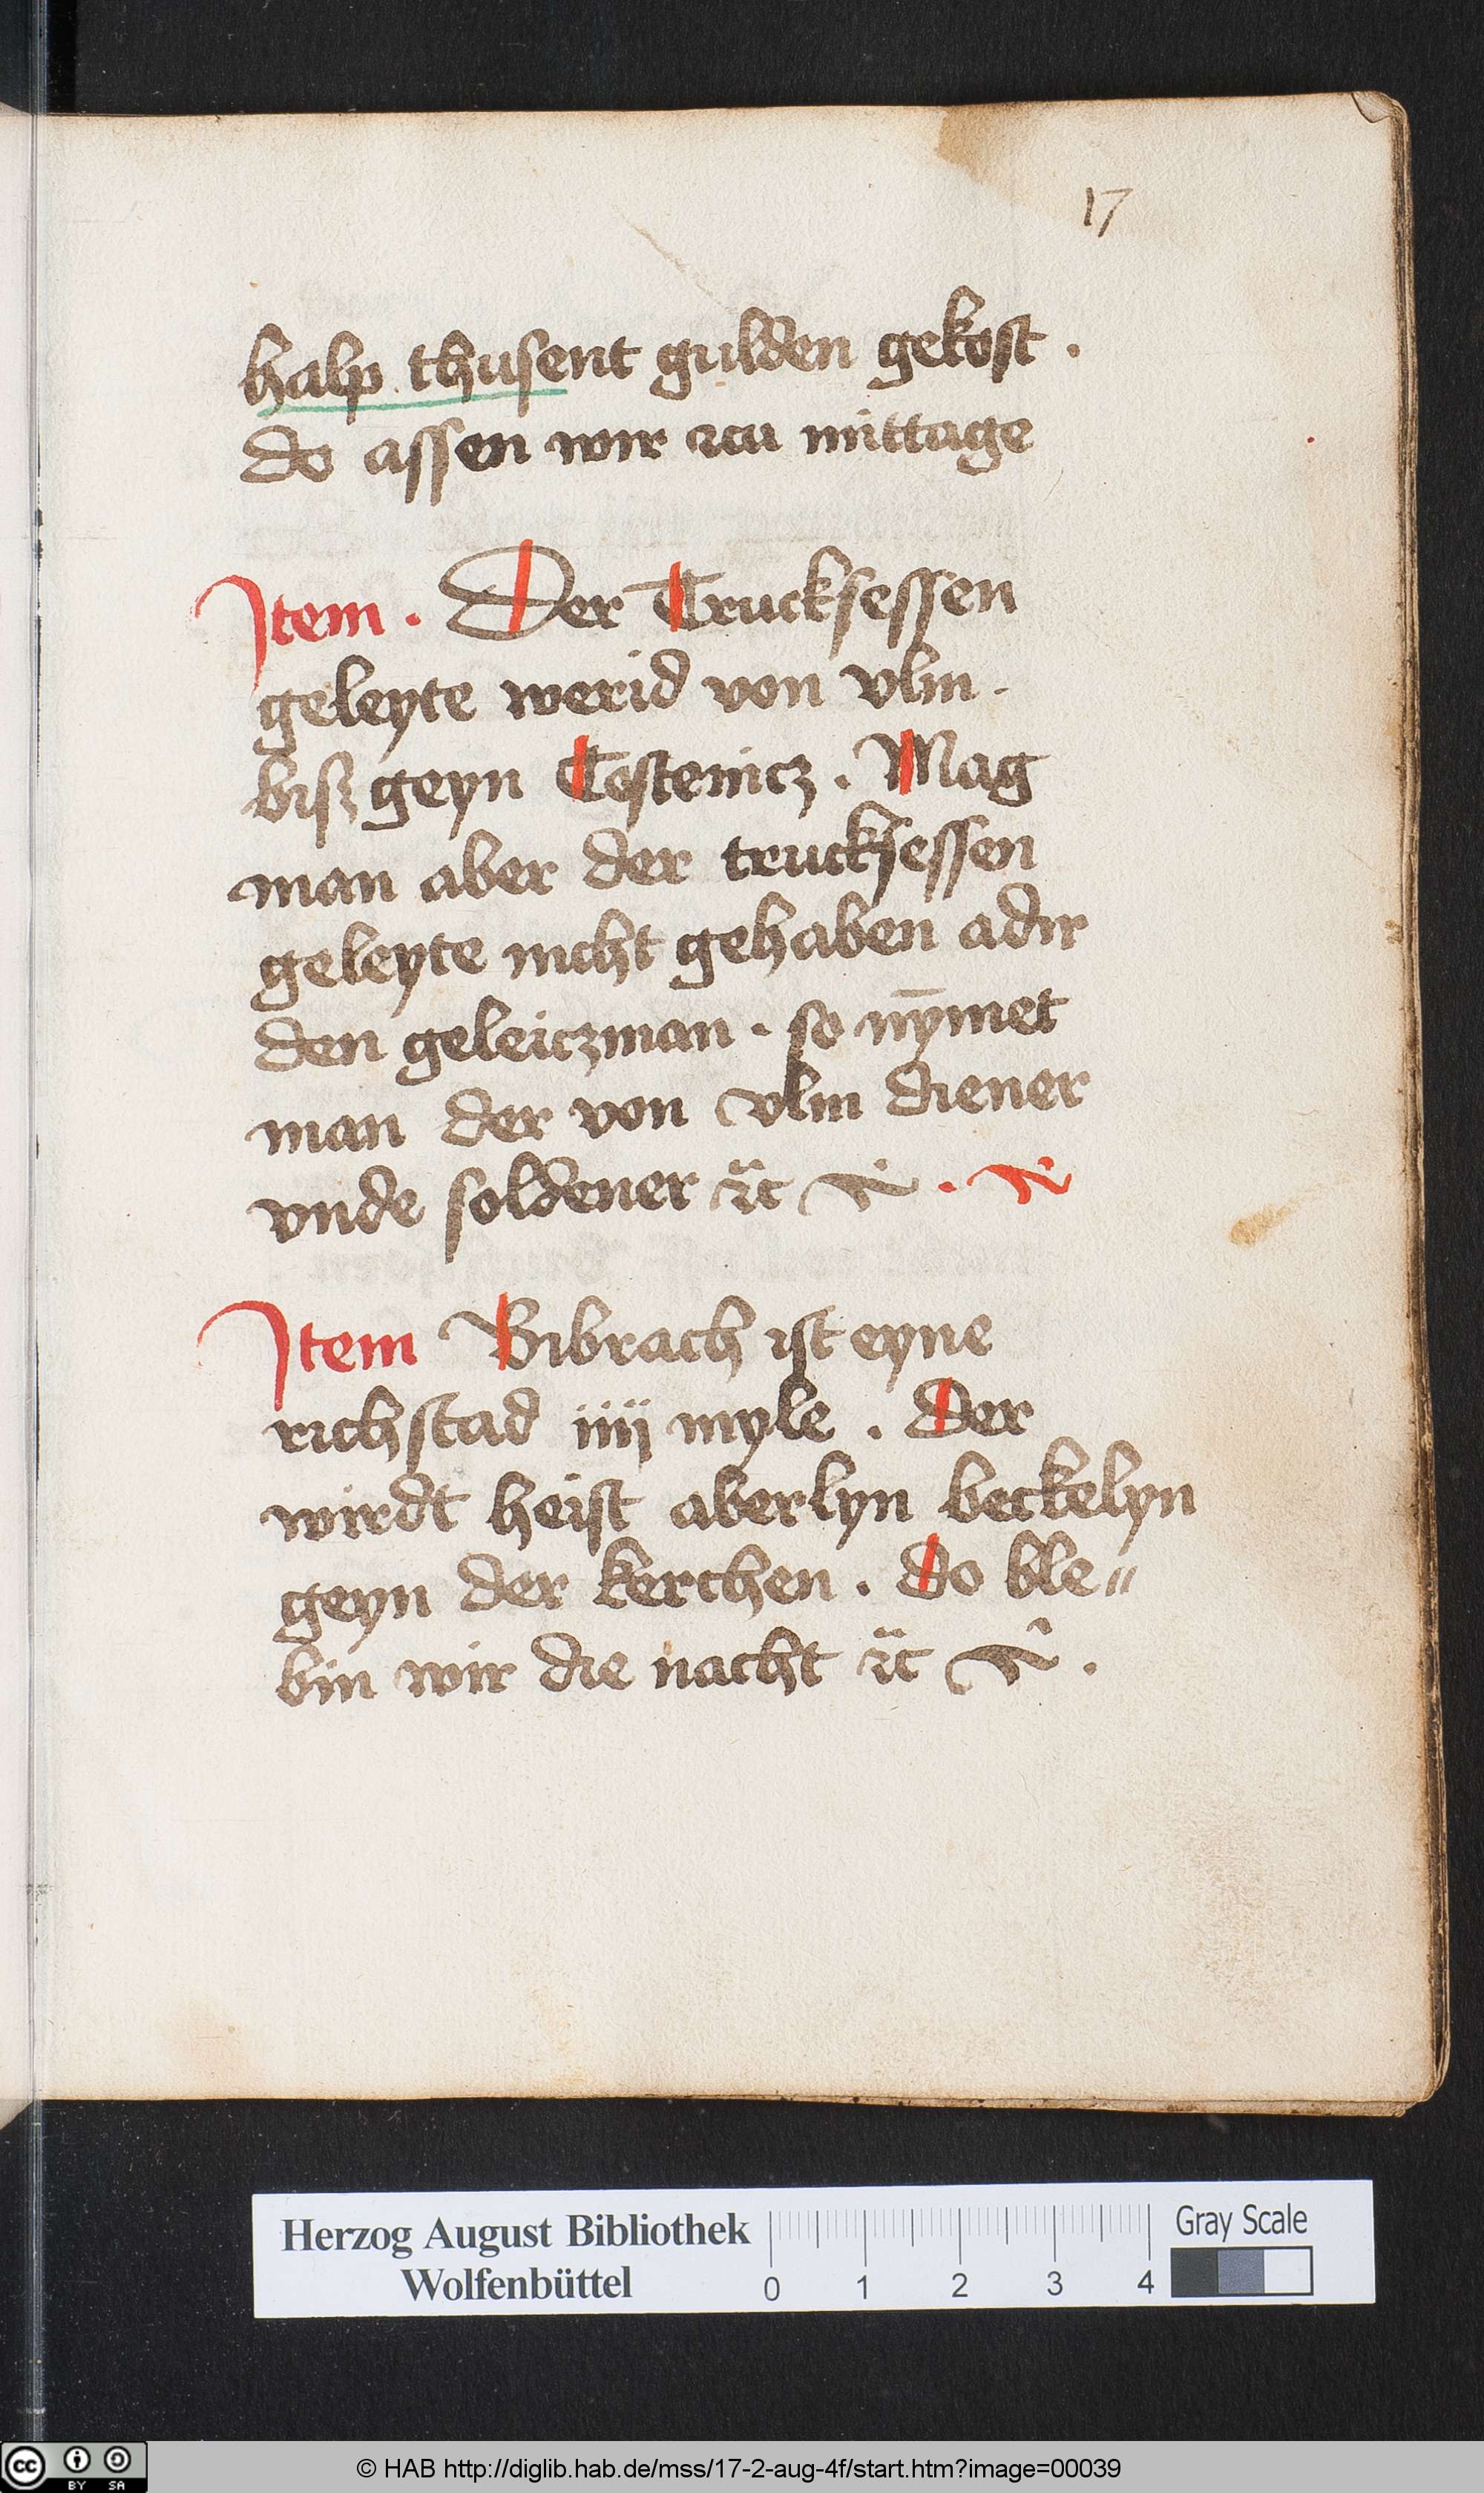 17
halp thusent gulden gekost .
do assen wir zcu mittage
Item . Der Trucksessen
geleyte werid von vlm .
biß geyn Costenicz . Mag
man aber der trucksessen
geleyte nicht gehaben adir
den geleiczman . so nȳmet
man der von vlm diener
vnde soldener ꝛc
Item Bibrach ist eyne
richstad iiij myle . Der
wirdt heist aberlyn beckelyn
geyn der kerchen . do ble〃
bin wir die nacht ꝛc .
Herzog August Bibliothek
Wolfenbüttel
0 1 2 3 4
Gray Scale
cc BY SA
© HAB http://diglib.hab.de/mss/17-2-aug-4f/start.htm?image=00039